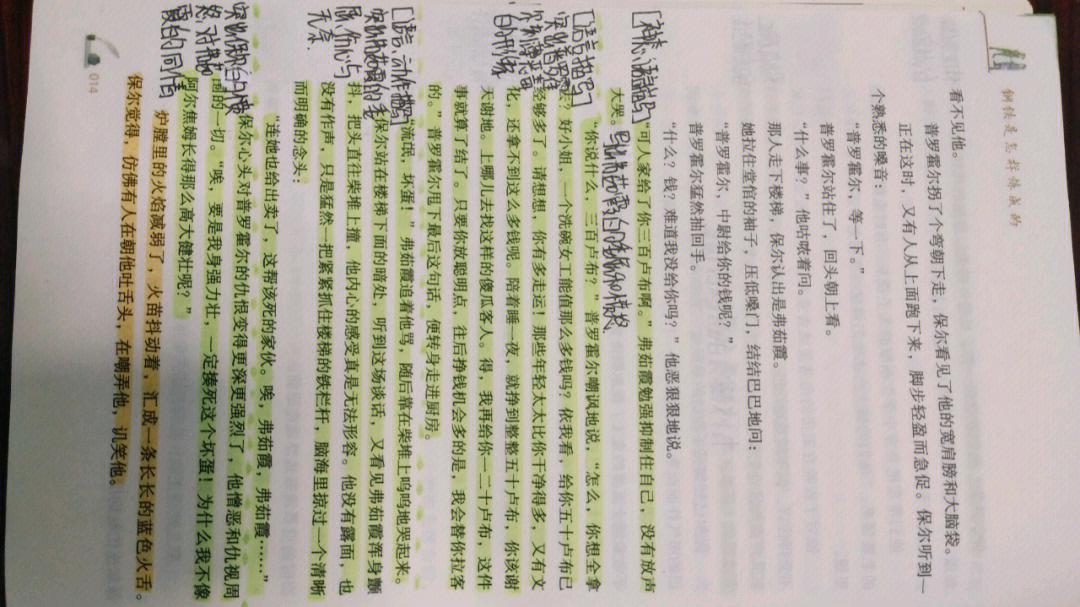 钢铁是怎样炼成的
看不见他。
普罗霍尔拐了个弯朝下走，保尔看见了他的宽肩膀和大脑袋。
正在这时，又有人从上面跑下来，脚步轻盈而急促。保尔听到一
个熟悉的嗓音：
“普罗霍尔，等一下。”
普罗霍尔站住了，回头朝上看。
“什么事？”他咕哝着问。
那人走下楼梯，保尔认出是弗茹霞。
她拉住堂倌的袖子，压低嗓门，结结巴巴地问：
“普罗霍尔，中尉给你的钱呢？”
普罗霍尔猛然抽回手。
“什么？钱？难道我没给你吗？”他恶狠狠地说。
“可人家给了你三百卢布啊。”弗茹霞勉强抑制住自己，没有放声
大哭。
“你说什么，三百卢布？”普罗霍尔嘲讽地说，“怎么，你想全拿
去？好小姐，一个洗碗女工能值那么多钱吗？依我看，给你五十卢布已
经够多了。请想想，你有多走运！那些年轻太太比你干净得多，又有文
化，还拿不到这么多钱呢。陪着睡一夜，就挣到整整五十卢布，你该谢
天谢地。上哪儿去找这样的傻瓜客人。得，我再给你一二十卢布，这件
事就算了结了。只要你放聪明点，往后挣钱机会多的是，我会替你拉客
的。”普罗霍尔甩下最后这句话，便转身走进厨房。
“流氓，坏蛋！”弗茹霞追着他骂，随后靠在柴堆上呜呜地哭起来。
保尔站在楼梯下面的暗处，听到这场谈话，又看见弗茹霞浑身颤
抖，把头直往柴堆上撞，他内心的感受真是无法形容。他没有露面，也
没有作声，只是猛然一把紧紧抓住楼梯的铁栏杆，脑海里掠过一个清晰
而明确的念头：
“连她也给出卖了，这帮该死的家伙。唉，弗茹霞，弗茹霞……”
保尔心头对普罗霍尔的仇恨变得更深更强烈了，他憎恶和仇视周
围的一切。唉，要是我身强力壮，一定揍死这个坏蛋！为什么我不像
阿尔焦姆长得那么高大健壮呢？”
炉膛里的火焰减弱了，火苗抖动着，汇成一条长长的蓝色火舌。
保尔觉得，仿佛有人在朝他吐舌头，在嘲弄他，讥笑他。
014
[语言描写]